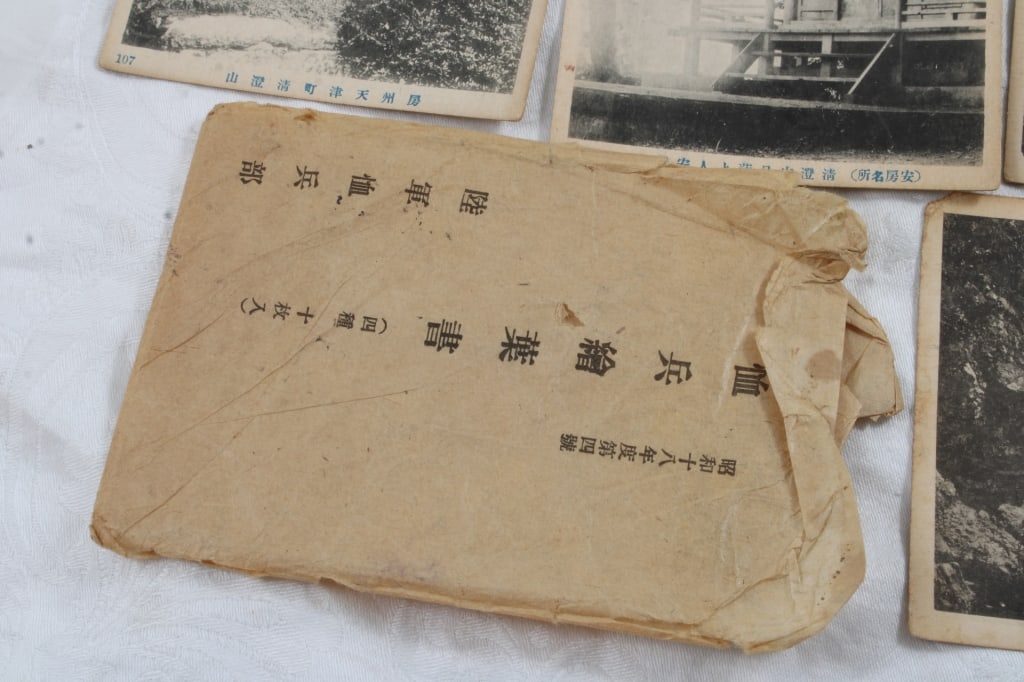 107
房州天津町清澄山
(安房名所) 清澄
昭和十八年度第四號
恤兵繪葉書
(四種 十枚入)
陸軍恤兵部